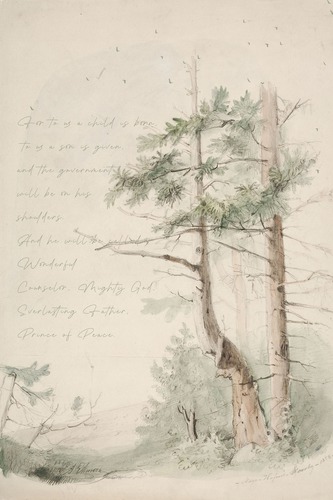 For to us a child is born,
to us a son is given,
and the government
will be on his
shoulders.
And he will be called
Wonderful
Counselor, Mighty God,
Everlasting Father,
Prince of Peace